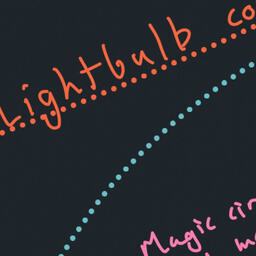 Lightbulb co
Magic cir